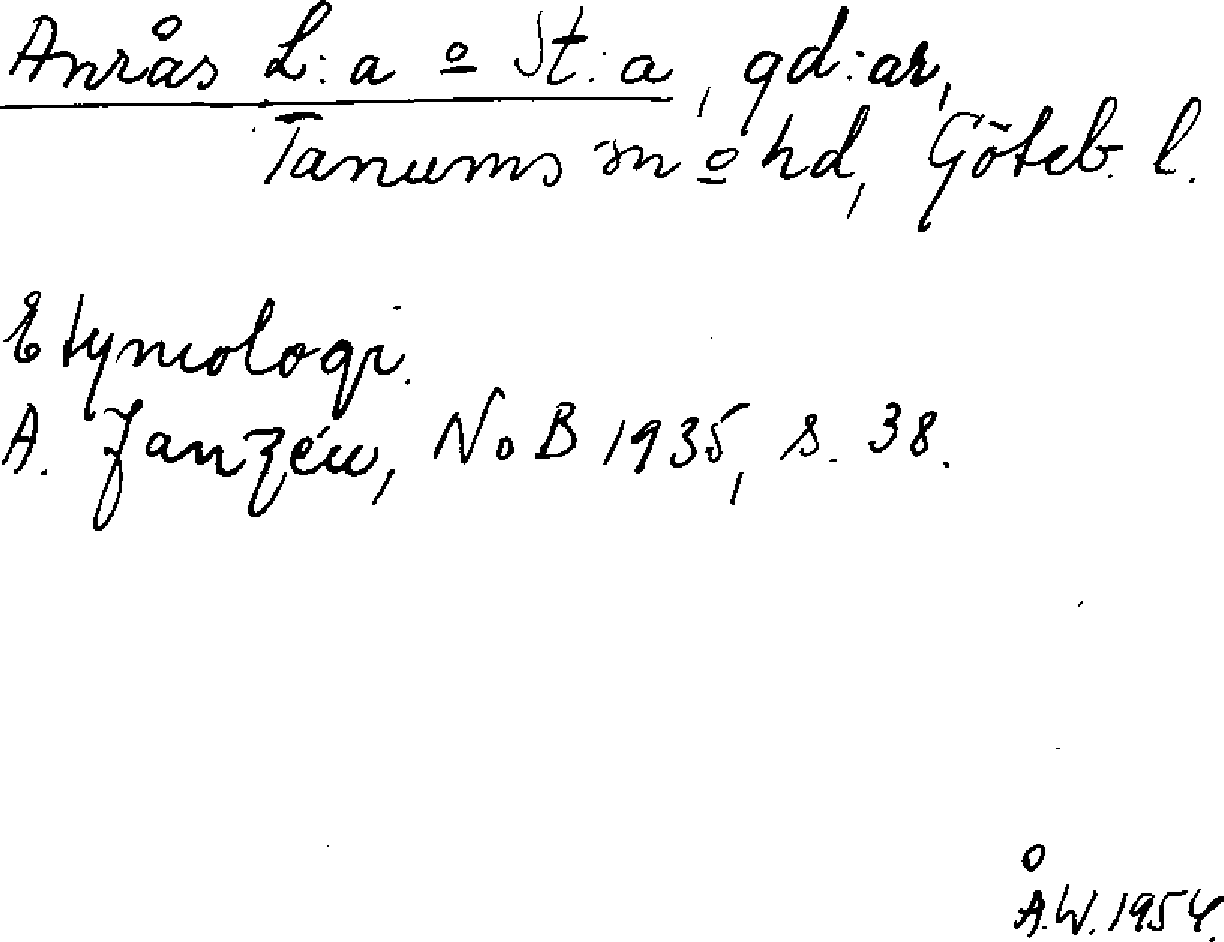 Anrås L:a o St:a, gd:ar,
Tanums sn o hd, Göteb. l.
Etymologi.
A. Janzén, NoB 1935, s. 38.
Å.W. 1954.